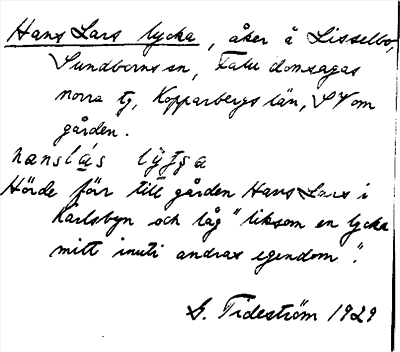 Hans Lars lycka, åker å Lisselbo,
Sundborns sn, Falu domsagas
norra tg, Kopparbergs län, SV om
gården.
hanslás
Hörde förr till gården Hans Lars i
Karlsbyn och låg "liksom en lycka
mitt inuti andras egendom".
G. Tideström 1929